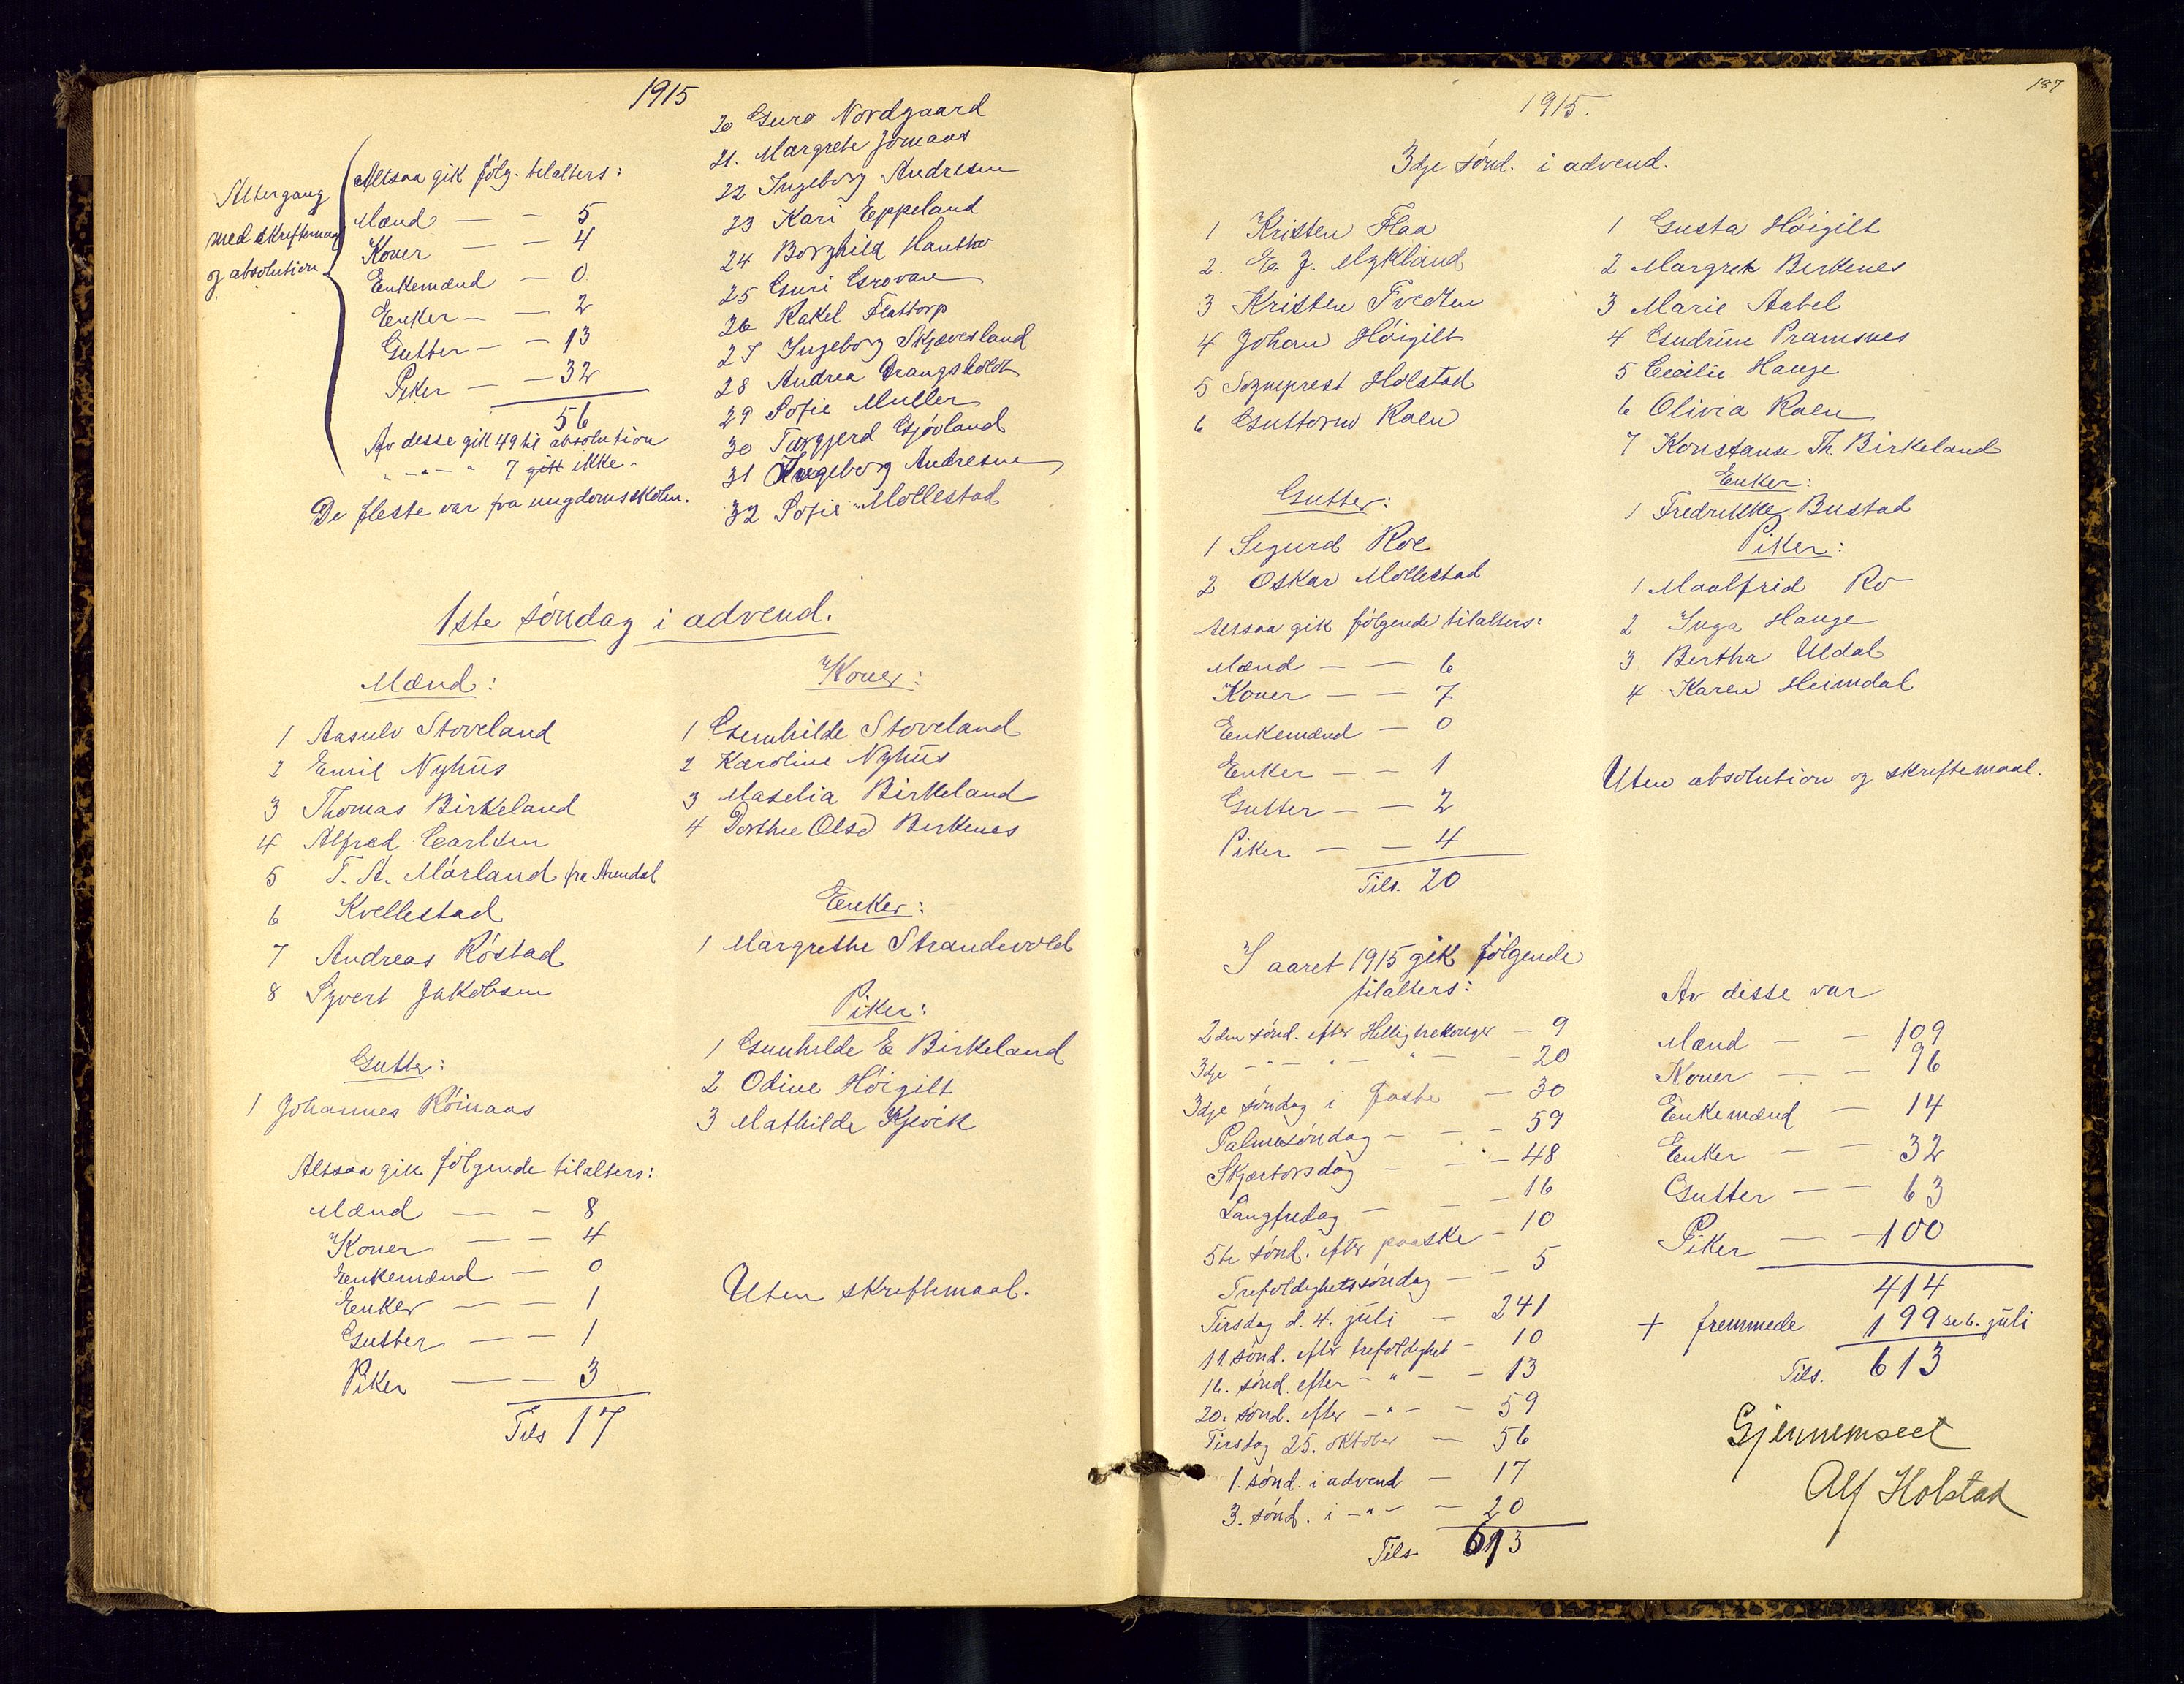 1915
Altergang
med skriftemaal
og absolution
Altsaa gik følg. tilalters:
Mænd — — 5
Koner — — 4
Enkemænd — 0
Enker — — 2
Gutter — — 13
Piker — — 32
56
Av desse gik 49 til absolution
" — " — " 7 gik ikke.
De fleste var fra ungdomsskolen.
20 Guro Nordgaard
21. Margrete Jomaas
22 Ingeborg Andresen
23 Kari Eppeland
24 Borghild
25 Guri Grovan
26 Rakel Flattorp
27 Ingeborg Skjævesland
28 Andrea Drangsholdt
29 Sofie Muller
30 Torgjerd Gjövland
31 Ingeborg Andresen
32 Sofie Mollestad
1ste søndag i advend.
Mænd:
1 Aasulv Stoveland
2 Emil Nyhus
3 Thomas Birkeland
4 Alfred Carlsen
5 T. A. Mørland fra Arendal
6 Kvellestad
7 Andreas Røstad
8 Syvert Jakobsen
Gutter:
1 Johannes Røinaas
Altsaa gik følgende tilalters:
Mænd — — 8
Koner — — 4
Enkemænd — 0
Enker — — 1
Gutter — — 1
Piker — — 3
Tils 17
Koner:
1 Gunhilde Stoveland
2 Karoline Nyhus
3 Maselia Birkeland
4 Dorthe Olsd Birkenes
Enker:
1 Margrethe Strandevold
Piker:
1 Gunhilde E Birkeland
2 Odine Høigilt
3 Mathilde Kjevik
Uten skriftemaal.
187
1915.
3dje sønd. i advend.
1 Kristen Flaa
2. E. J. Mykland
3 Kristen Tvedten
4 Johan Høigilt
5 Sogneprest Holstad
6 Guttorm Raen
Gutter:
1 Sigurd Roe
2 Oskar Mollestad
Altsaa gik følgende tilalters:
Mænd — — 6
Koner — — 7
Enkemænd — 0
Enker — — 1
Gutter — — 2
Piker — — 4
Tils. 20
1 Gusta Høigilt
2 Margrete Birkenes
3 Marie Aabel
4 Gudrun Pramsnes
5 Cecilie Hauge
6 Olivia Raen
7 Konstanse Th. Birkeland
Enker:
1 Fredrikke Bustad
Piker:
1 Maalfrid Ro
2 Inga Hauge
3 Bertha Uldal
4 Karen Heimdal
Uten absolution og skriftemaal.
I aaret 1915 gik følgende
tilalters:
2den sønd. efter Hellig trekonger — 9
3dje — " — " — " — 20
3dje søndag i faste — 30
Palmesøndag — — 59
Skjærtorsdag — — 48
Langfredag — — 16
5te sønd. efter paaske — 10
Trefoldighetssøndag — — 5
Tirsdag d. 4. juli — 241
11. sønd. efter trefoldighet — 10
16. sønd. efter — " — — 13
20. sønd. efter — " — — 59
Tirsdag 25. oktober — 56
1. sønd. i advend — 17
3. sønd. i — " — — 20
Tils. 613
Av disse var
Mænd — — 109
Koner — — 96
Enkemænd — 14
Enker — — 32
Gutter — — 63
Piker — — 100
414
+ fremmede 199 se 6. juli
Tils. 613
Gjennemseet
Alf Holstad